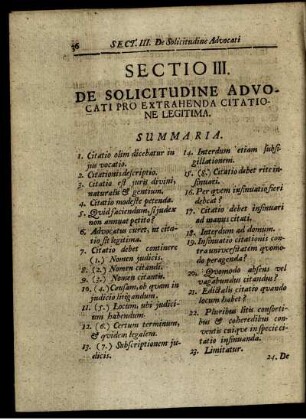 36 SECT. III. De Solicitudine Advocati
SECTIO III.
DE SOLICITUDINE ADVO-
CATI PRO EXTRAHENDA CITATIO-
NE LEGITIMA.
SUMMARIA.
1. Citatio olim dicebatur in
jus vocatio.
2. Citationis descriptio.
3. Citatio est juris divini,
naturalis & gentium.
4. Citatio modeste petenda.
5. Quid faciendum, si judex
non annuat petito?
6. Advocatus curet, ut cita-
tio sit legitima.
7. Citatio debet continere
(1.) Nomen judicis.
8. (2.) Nomen citandi.
9. (3.) Nomen citantis.
10. (4.) Causam, ob quam in
judicio litigandum.
11. (5.) Locum, ubi judici-
um habendum.
12. (6.) Certum terminum,
& quidem legalem.
13. (7.) Subscriptionem ju-
dicis.
14. Interdum etiam subsi-
gillationem.
15. (8.) Citatio debet rite in-
sinuari.
16. Per quem insinuatio fieri
debeat?
17. Citatio debet insinuari
ad manus citati.
18. Interdum ad domum.
19. Insinuatio citationis con-
tra universitatem quomo-
do peragenda?
20. Quomodo absens vel
vagabundus citandus?
21. Edictalis citatio quando
locum habet?
22. Pluribus litis consorti-
bus & coheredibus con-
ventis cuique in specie ci-
tatio insinuanda.
23. Limitatur.
24. De